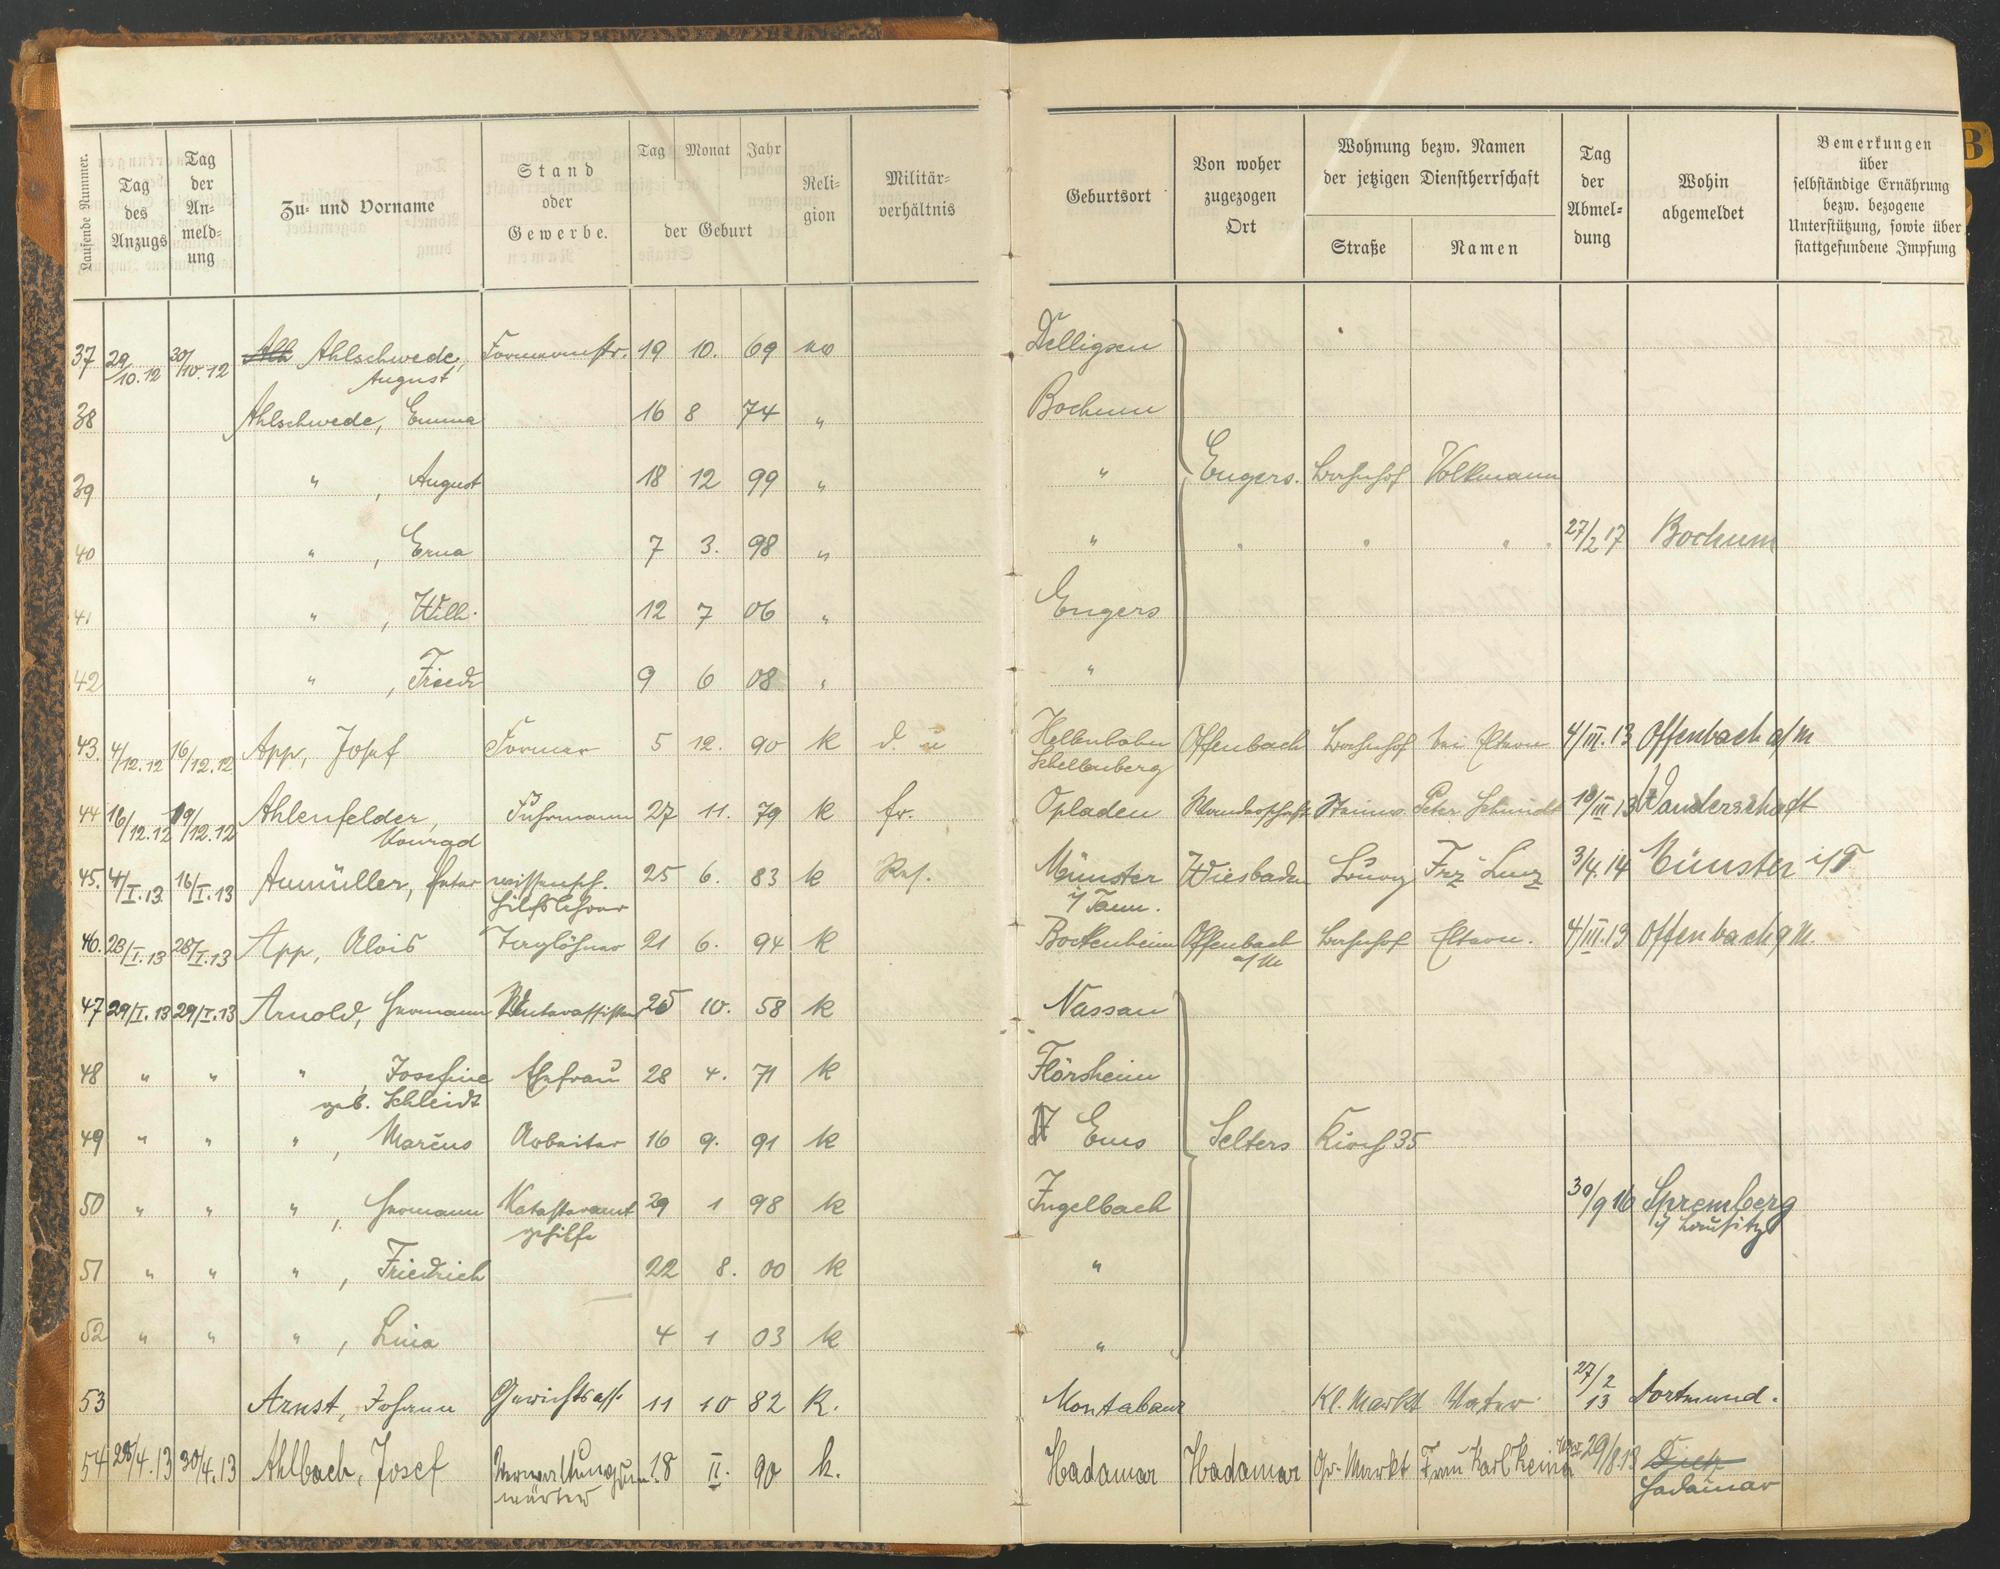 Laufende Nummer.
Tag des Anzugs
Tag der An-meld-ung
Zu- und Vorname
Stand oder Gewerbe.
Tag Monat Jahr
der Geburt
Reli-gion
Militär-verhältnis
Geburtsort
Von woher zugezogen Ort
Wohnung bezw. Namen der jetzigen Dienstherrschaft
Straße Namen
Tag der Abmel-dung
Wohin abgemeldet
Bemerkungen über selbständige Ernährung bezw. bezogene Unterstützung, sowie über stattgefundene Impfung
B
37 29/10.12 30/10.12 Ahlschwede, August Formermstr. 19 10. 69 Delligsen
38 Ahlschwede, Emma 16 8 74 " Bochum
39 " , August 18 12 99 " " Engers. Bahnhof Volkmann
40 " , Erna 7 3. 98 " " " " " 27/2 17 Bochum
41 " , Wilh. 12 7 06 " Engers
42 " , Friedr 9 6 08 " "
43. 4/12.12 16/12.12 App, Josef Former 5 12. 90 k d. u Schellenberg Offenbach Bahnhof bei Eltern 4/III.13 Offenbach a/M
44 16/12.12 19/12.12 Ahlenfelder, Konrad Fuhrmann 27 11. 79 k fr. Opladen Wanderschaft Peter Schmidt 13/III 13 Wanderschaft
45. 4/I.13 16/I.13 Aumüller, Peter wissensch. Hilfslehrer 25 6. 83 k Res. Münster i/Taun. Wiesbaden Frz Lenz 3/4.14 Münster i/T
46. 28/I.13 28/I.13 App, Alois Taglöhner 21 6. 94 k Bockenheim Offenbach a/M Bahnhof Eltern. 4/III.13 Offenbach a M.
47 29/I.13 29/I.13 Arnold, Hermann 10. 58 k Nassau
48 " " " , Josefine geb. Schleidt Ehefrau 28 4. 71 k Flörsheim
49 " " " , Marius Arbeiter 16 9. 91 k Ems Selters Kirch 35
50 " " " , Hermann Katasteramt gehilfe 29 1 98 k Ingelbach 30/9 16 Spremberg i/Lausitz
51 " " " , Friedrich 22 8. 00 k "
52 " " " , Lina 4 1 03 k "
53 Arnst, Johann Gerichtsass. 11 10 82 K. Montabaur Kl. Markt Vater 27/2 13 Dortmund.
54 28/4.13 30/4.13 Ahlbach, Josef Verwaltungsan wärter 18 II. 90 k. Hadamar Hadamar Gr. Markt Frau Karl 29/8.13 Hadamar